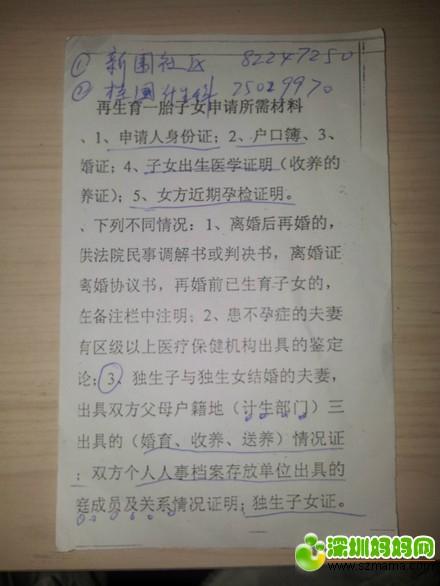 ① 新围社区 82247250
② 桂园计生科 25029970
再生育一胎子女申请所需材料
、1、申请人身份证；2、户口簿、3、
婚证；4、子女出生医学证明（收养的
养证）；5、女方近期孕检证明。
、下列不同情况：1、离婚后再婚的，
供法院民事调解书或判决书，离婚证
离婚协议书，再婚前已生育子女的，
在备注栏中注明；2、患不孕症的夫妻
有区级以上医疗保健机构出具的鉴定
论；3、独生子与独生女结婚的夫妻，
出具双方父母户籍地（计生部门）三
出具的（婚育、收养、送养）情况证
；双方个人人事档案存放单位出具的
庭成员及关系情况证明；独生子女证。
深圳妈妈网
www.szmama.com